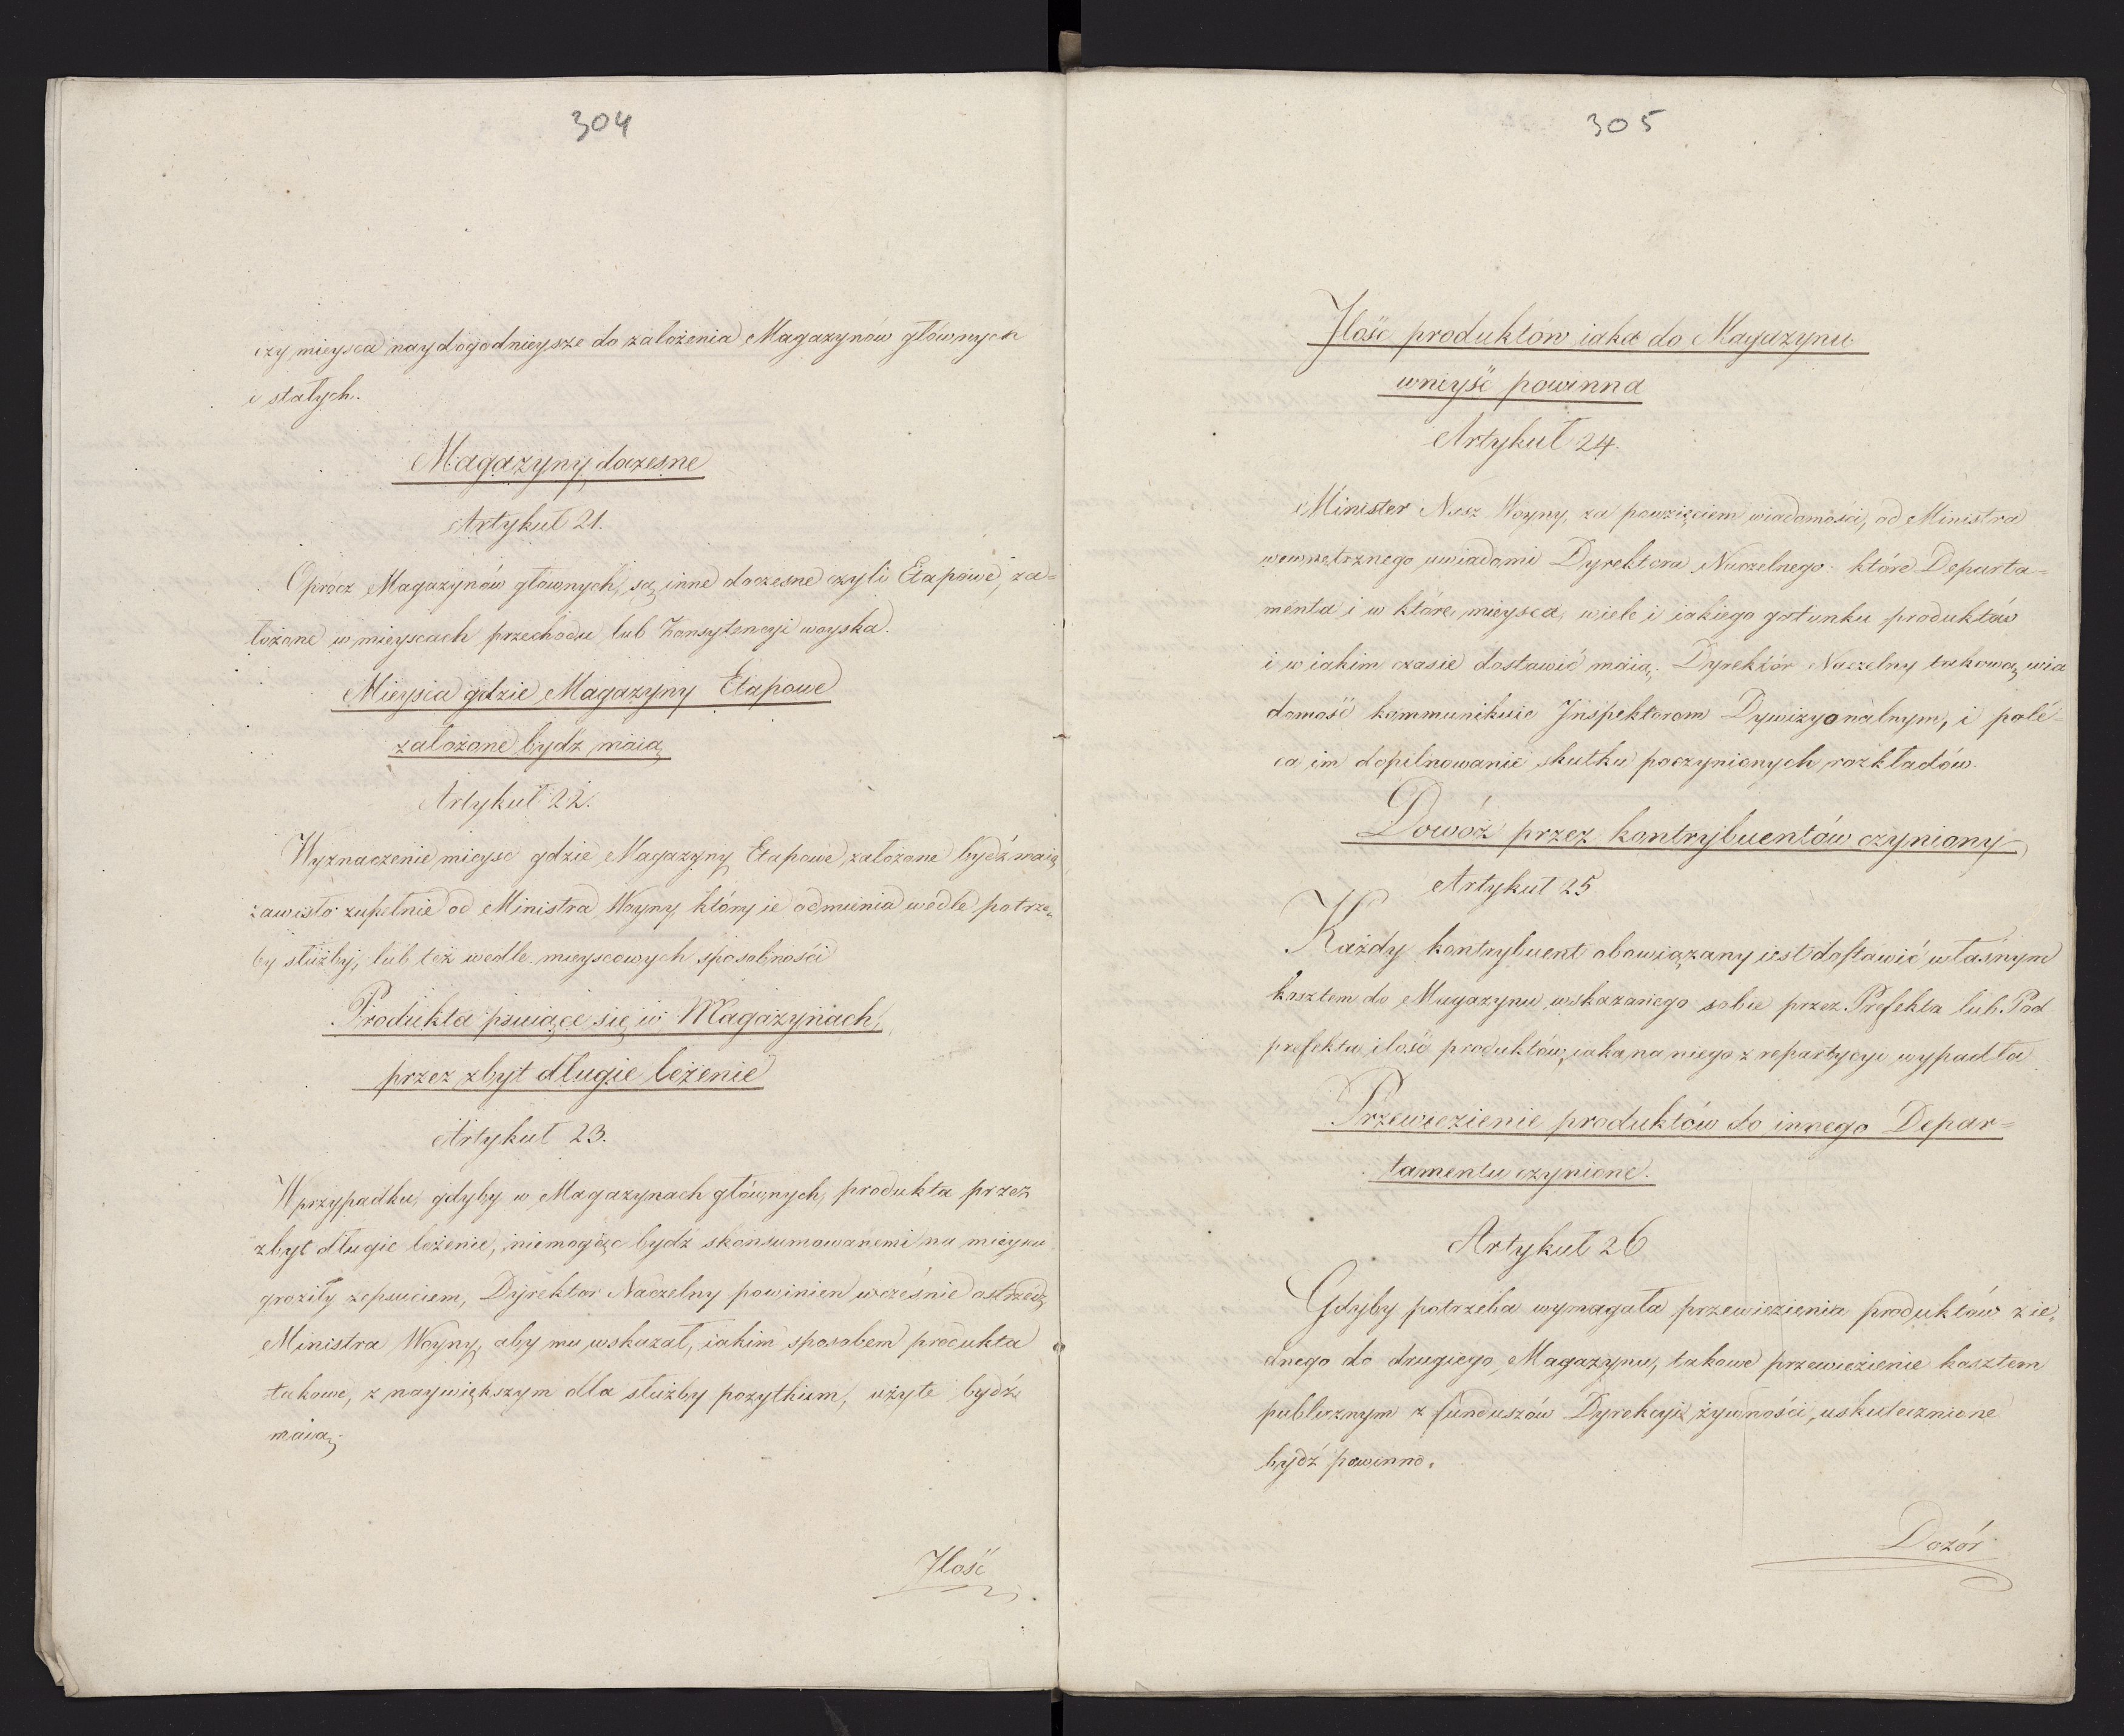 304
czy mieysca naydogodnieysze do założenia Magazynów głównych
i stałych.
Magazyny doczesne
Artykuł 21.
Oprócz Magazynów głównych, są inne doczesne czyli Etapowe, za=
łożone w mieyscach przechodu lub Konsystencyi woyska.
Mieysca gdzie Magazyny Etapowe
założone bydź maią
Artykuł 22.
Wyznaczenie mieysc gdzie Magazyny Etapowe założone bydź maią
zawisło zupełnie od Ministra Woyny, który ie odmienia wedle potrze=
by służby, lub też wedle mieyscowych sposobności
Produkta psuiące się w Magazynach,
przez zbyt długie leżenie
Artykuł 23.
W przypadku, gdyby w Magazynach głównych, produkta przez
zbyt długie leżenie, niemogąc bydź skonsumowanemi na mieyscu
groziły zepsuciem, Dyrektor Naczelny powinien wcześnie ostrzedz
Ministra Woyny, aby mu wskazał, iakim sposobem produkta
takowe, z naywiększym dla służby pożytkiem, użyte bydź
maią.
Jlość
305
Jlość produktów iaka do Magazynu
wniyść powinna
Artykuł 24.
Minister Nasz Woyny, za powzięciem wiadomości, od Ministra
wewnętrznego uwiadomi Dyrektora Naczelnego: które Departa=
menta i w które mieysca, wiele i iakiego gatunku produktów
i w iakim czasie dostawić maią; Dyrektór Naczelny takową wia
domość kommunikuie Jnspektorom Dywizyonalnym, i pole=
ca im dopilnowanie skutku poczynionych rozkładów.
Dowóz przez kontrybuentów czyniony
Artykuł 25
Każdy kontrybuent obowiązany iest dostawić własnym
kosztem do Magazynu wskazanego sobie przez Prefekta lub Pod
prefekta ilość produktów, iaka na niego z repartycyi wypadła
Przewiezienie produktów do innego Depar=
tamentu czynione.
Artykuł 26
Gdyby potrzeba wymagała przewiezienia produktów z ie=
dnego do drugiego Magazynu, takowe przewiezienie kosztem
publicznym z funduszów Dyrekcyi żywności, uskutecznione
bydź powinno.
Dozór